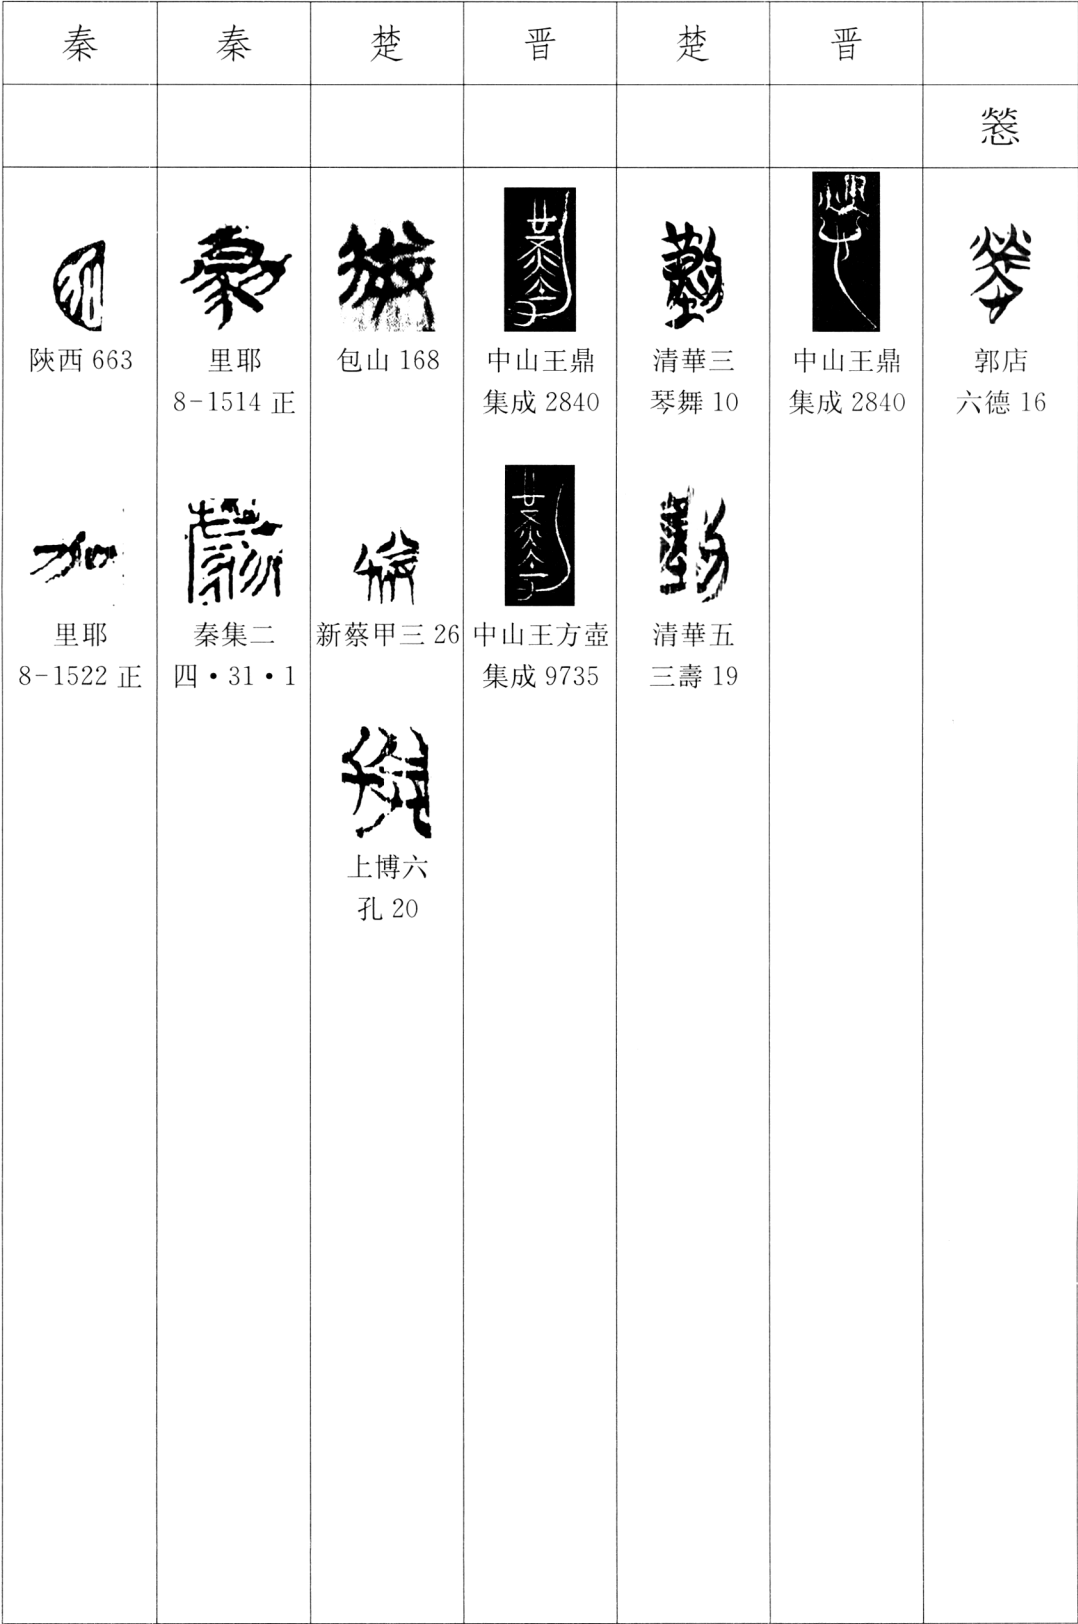 秦 秦 楚 晋 楚 晋
陝西 663
里耶
8-1514 正
包山 168
中山王鼎
集成 2840
清華三
琴舞 10
中山王鼎
集成 2840
郭店
六德 16
里耶
8-1522 正
秦集二
四·31·1
新蔡甲三 26
中山王方壺
集成 9735
清華五
三壽 19
上博六
孔 20